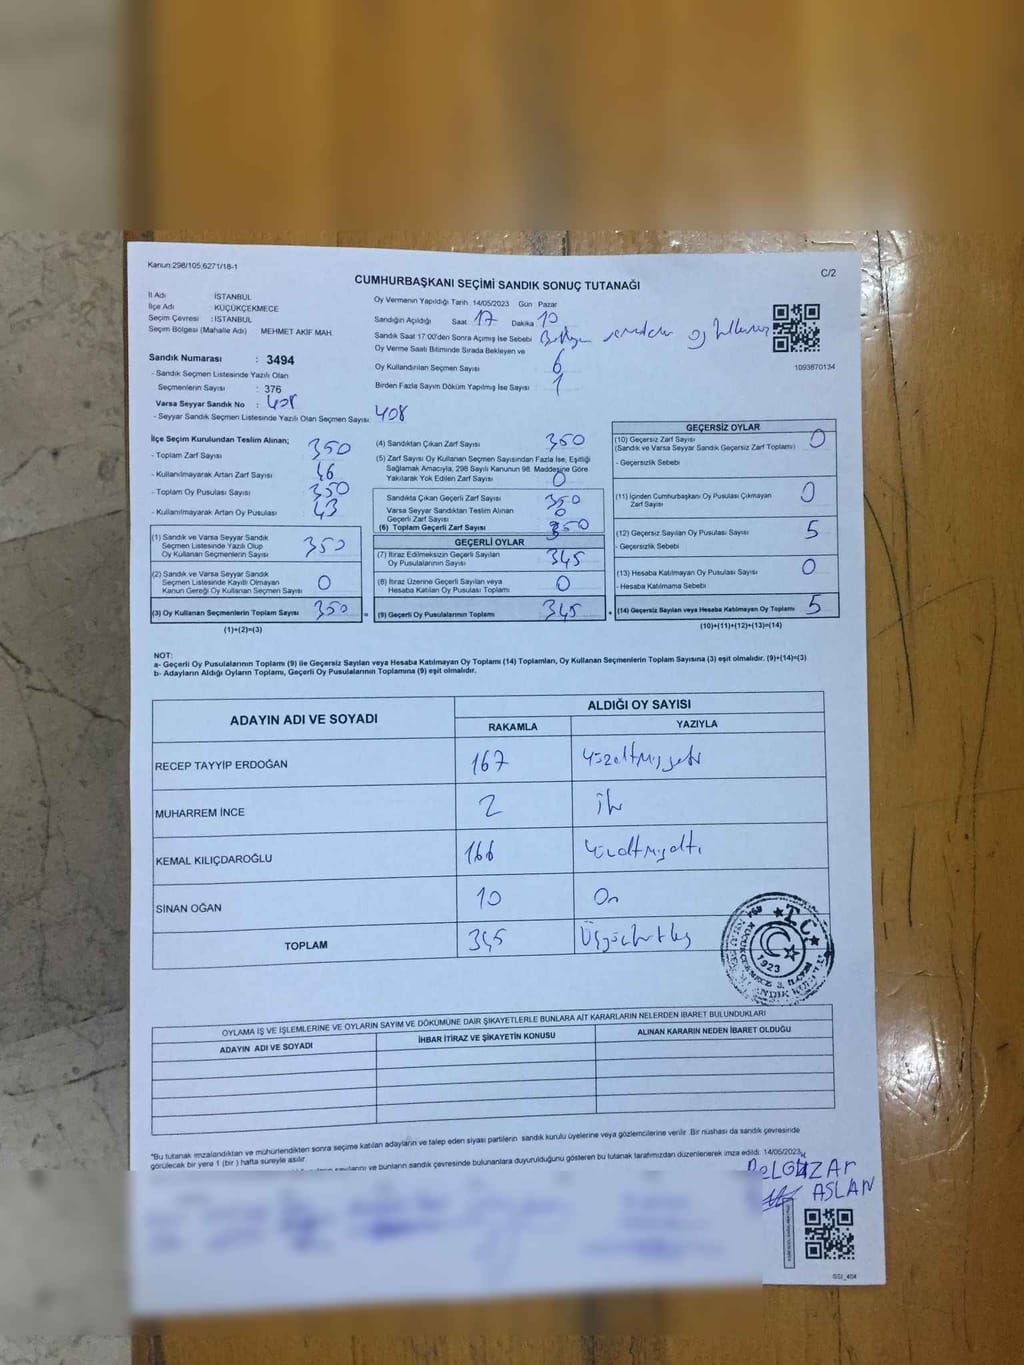 Kanun:298/105;6271/18-1
C/2
CUMHURBAŞKANI SEÇİMİ SANDIK SONUÇ TUTANAĞI
İl Adı İSTANBUL
İlçe Adı KÜÇÜKÇEKMECE
Seçim Çevresi : İSTANBUL
Seçim Bölgesi (Mahalle Adı) MEHMET AKİF MAH.
Sandık Numarası : 3494
- Sandık Seçmen Listesinde Yazılı Olan
Seçmenlerin Sayısı : 376
Varsa Seyyar Sandık No : 408
- Seyyar Sandık Seçmen Listesinde Yazılı Olan Seçmen Sayısı 408
Oy Vermenin Yapıldığı Tarih 14/05/2023 Gün Pazar
Sandığın Açıldığı Saat 17 Dakika 10
Sandık Saat 17:00'den Sonra Açımış İse Sebebi
Oy Verme Saati Bitiminde Sırada Bekleyen ve
Oy Kullandırılan Seçmen Sayısı 6
Birden Fazla Sayım Döküm Yapılmış İse Sayısı 1
1093870134
İlçe Seçim Kurulundan Teslim Alınan;
- Toplam Zarf Sayısı 350
- Kullanılmayarak Artan Zarf Sayısı 46
- Toplam Oy Pusulası Sayısı 350
- Kullanılmayarak Artan Oy Pusulası 43
(1) Sandık ve Varsa Seyyar Sandık
Seçmen Listesinde Yazılı Olup
Oy Kullanan Seçmenlerin Sayısı 350
(2) Sandık ve Varsa Seyyar Sandık
Seçmen Listesinde Kayıtlı Olmayan
Kanun Gereği Oy Kullanan Seçmen Sayısı 0
(3) Oy Kullanan Seçmenlerin Toplam Sayısı 350 =
(1)+(2)=(3)
(4) Sandıktan Çıkan Zarf Sayısı 350
(5) Zarf Sayısı Oy Kullanan Seçmen Sayısından Fazla İse, Eşitliği
Sağlamak Amacıyla, 298 Sayılı Kanunun 98. Maddesine Göre
Yakılarak Yok Edilen Zarf Sayısı 0
Sandıkta Çıkan Geçerli Zarf Sayısı 350
Varsa Seyyar Sandıktan Teslim Alınan
Geçerli Zarf Sayısı 0
(6) Toplam Geçerli Zarf Sayısı 350
GEÇERLİ OYLAR
(7) İtiraz Edilmeksizin Geçerli Sayılan
Oy Pusulalarının Sayısı 345
(8) İtiraz Üzerine Geçerli Sayılan veya
Hesaba Katılan Oy Pusulası Toplamı 0
(9) Geçerli Oy Pusulalarının Toplamı 345 +
GEÇERSİZ OYLAR
(10) Geçersiz Zarf Sayısı
(Sandık ve Varsa Seyyar Sandık Geçersiz Zarf Toplamı) 0
- Geçersizlik Sebebi
(11) İçinden Cumhurbaşkanı Oy Pusulası Çıkmayan
Zarf Sayısı 0
(12) Geçersiz Sayılan Oy Pusulası Sayısı 5
- Geçersizlik Sebebi
(13) Hesaba Katılmayan Oy Pusulası Sayısı 0
- Hesaba Katılmama Sebebi
(14) Geçersiz Sayılan veya Hesaba Katılmayan Oy Toplamı 5
(10)+(11)+(12)+(13)=(14)
NOT:
a- Geçerli Oy Pusulalarının Toplamı (9) ile Geçersiz Sayılan veya Hesaba Katılmayan Oy Toplamı (14) Toplamları, Oy Kullanan Seçmenlerin Toplam Sayısına (3) eşit olmalıdır. (9)+(14)=(3)
b- Adayların Aldığı Oyların Toplamı, Geçerli Oy Pusulalarının Toplamına (9) eşit olmalıdır.
ADAYIN ADI VE SOYADI ALDIĞI OY SAYISI
RAKAMLA YAZIYLA
RECEP TAYYİP ERDOĞAN 167 Yüzaltmışyedi
MUHARREM İNCE 2 İki
KEMAL KILIÇDAROĞLU 166 Yüzaltmışaltı
SİNAN OĞAN 10 On
TOPLAM 345 Üçyüzkırkbeş
T.C.
1923
OYLAMA İŞ VE İŞLEMLERİNE VE OYLARIN SAYIM VE DÖKÜMÜNE DAİR ŞİKAYETLERLE BUNLARA AİT KARARLARIN NELERDEN İBARET BULUNDUKLARI
ADAYIN ADI VE SOYADI İHBAR İTİRAZ VE ŞİKAYETİN KONUSU ALINAN KARARIN NEDEN İBARET OLDUĞU
"Bu tutanak imzalandıktan ve mühürlendikten sonra seçime katılan adayların ve talep eden siyasi partilerin sandık kurulu üyelerine veya gözlemcilerine verilir. Bir nüshası da sandık çevresinde
görülecek bir yere 1 (bir ) hafta süreyle asılır.
sayılarını ve bunların sandık çevresinde bulunanlara duyurulduğunu gösteren bu tutanak tarafımızdan düzenlenerek imza edildi. 14/05/2023
BELGÜZAR
ASLAN
SSI_404